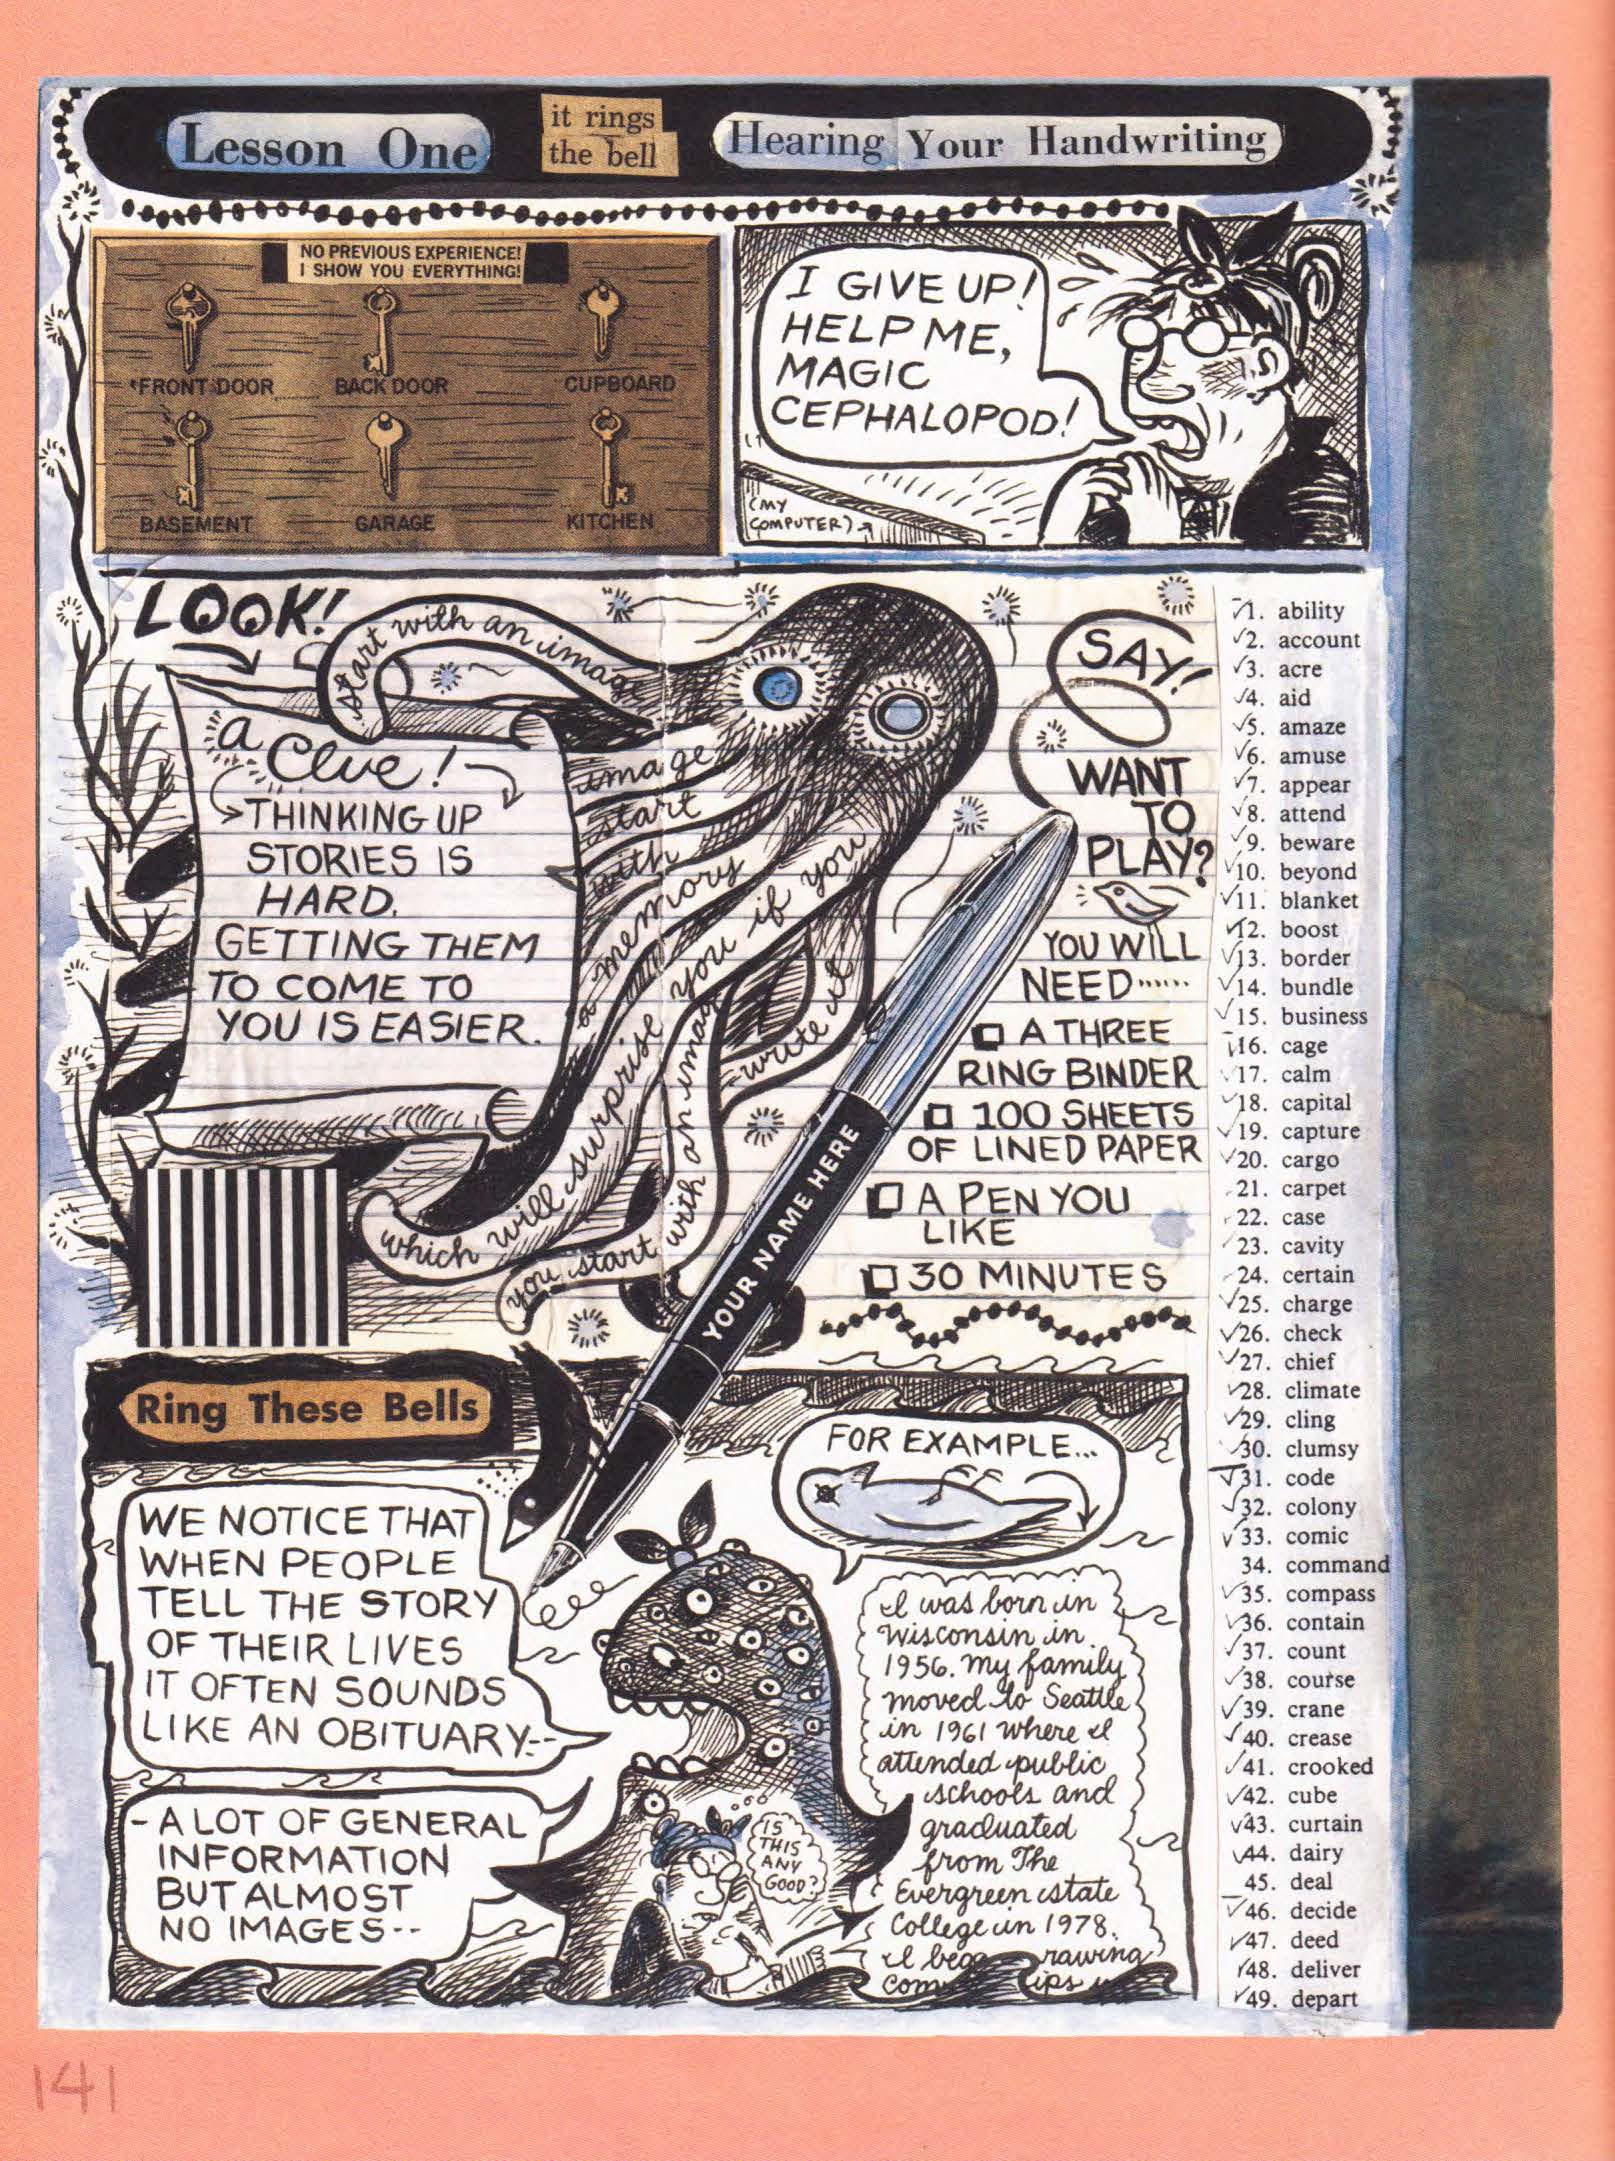 Lesson One
it rings
the bell
Hearing Your Handwriting
NO PREVIOUS EXPERIENCE!
I SHOW YOU EVERYTHING!
FRONT DOOR
BACK DOOR
CUPBOARD
BASEMENT
GARAGE
KITCHEN
I GIVE UP!
HELP ME,
MAGIC
CEPHALOPOD!
(MY
COMPUTER)
LOOK!
a
Clue!
THINKING UP
STORIES IS
HARD.
GETTING THEM
TO COME TO
YOU IS EASIER.
start with an image
image
start
with
a memory
which will surprise you if you
you start with an image
write it
SAY!
WANT
TO
PLAY?
YOU WILL
NEED......
A THREE
RING BINDER
100 SHEETS
OF LINED PAPER
A PEN YOU
LIKE
30 MINUTES
YOUR NAME HERE
1. ability
2. account
3. acre
4. aid
5. amaze
6. amuse
7. appear
8. attend
9. beware
10. beyond
11. blanket
12. boost
13. border
14. bundle
15. business
16. cage
17. calm
18. capital
19. capture
20. cargo
21. carpet
22. case
23. cavity
24. certain
25. charge
26. check
27. chief
28. climate
29. cling
30. clumsy
31. code
32. colony
33. comic
34. command
35. compass
36. contain
37. count
38. course
39. crane
40. crease
41. crooked
42. cube
43. curtain
44. dairy
45. deal
46. decide
47. deed
48. deliver
49. depart
Ring These Bells
WE NOTICE THAT
WHEN PEOPLE
TELL THE STORY
OF THEIR LIVES
IT OFTEN SOUNDS
LIKE AN OBITUARY--
- A LOT OF GENERAL
INFORMATION
BUT ALMOST
NO IMAGES--
FOR EXAMPLE...
IS
THIS
ANY
GOOD?
I was born in
Wisconsin in
1956. My family
moved to Seattle
in 1961 where I
attended public
schools and
graduated
from The
Evergreen State
College in 1978.
I
141